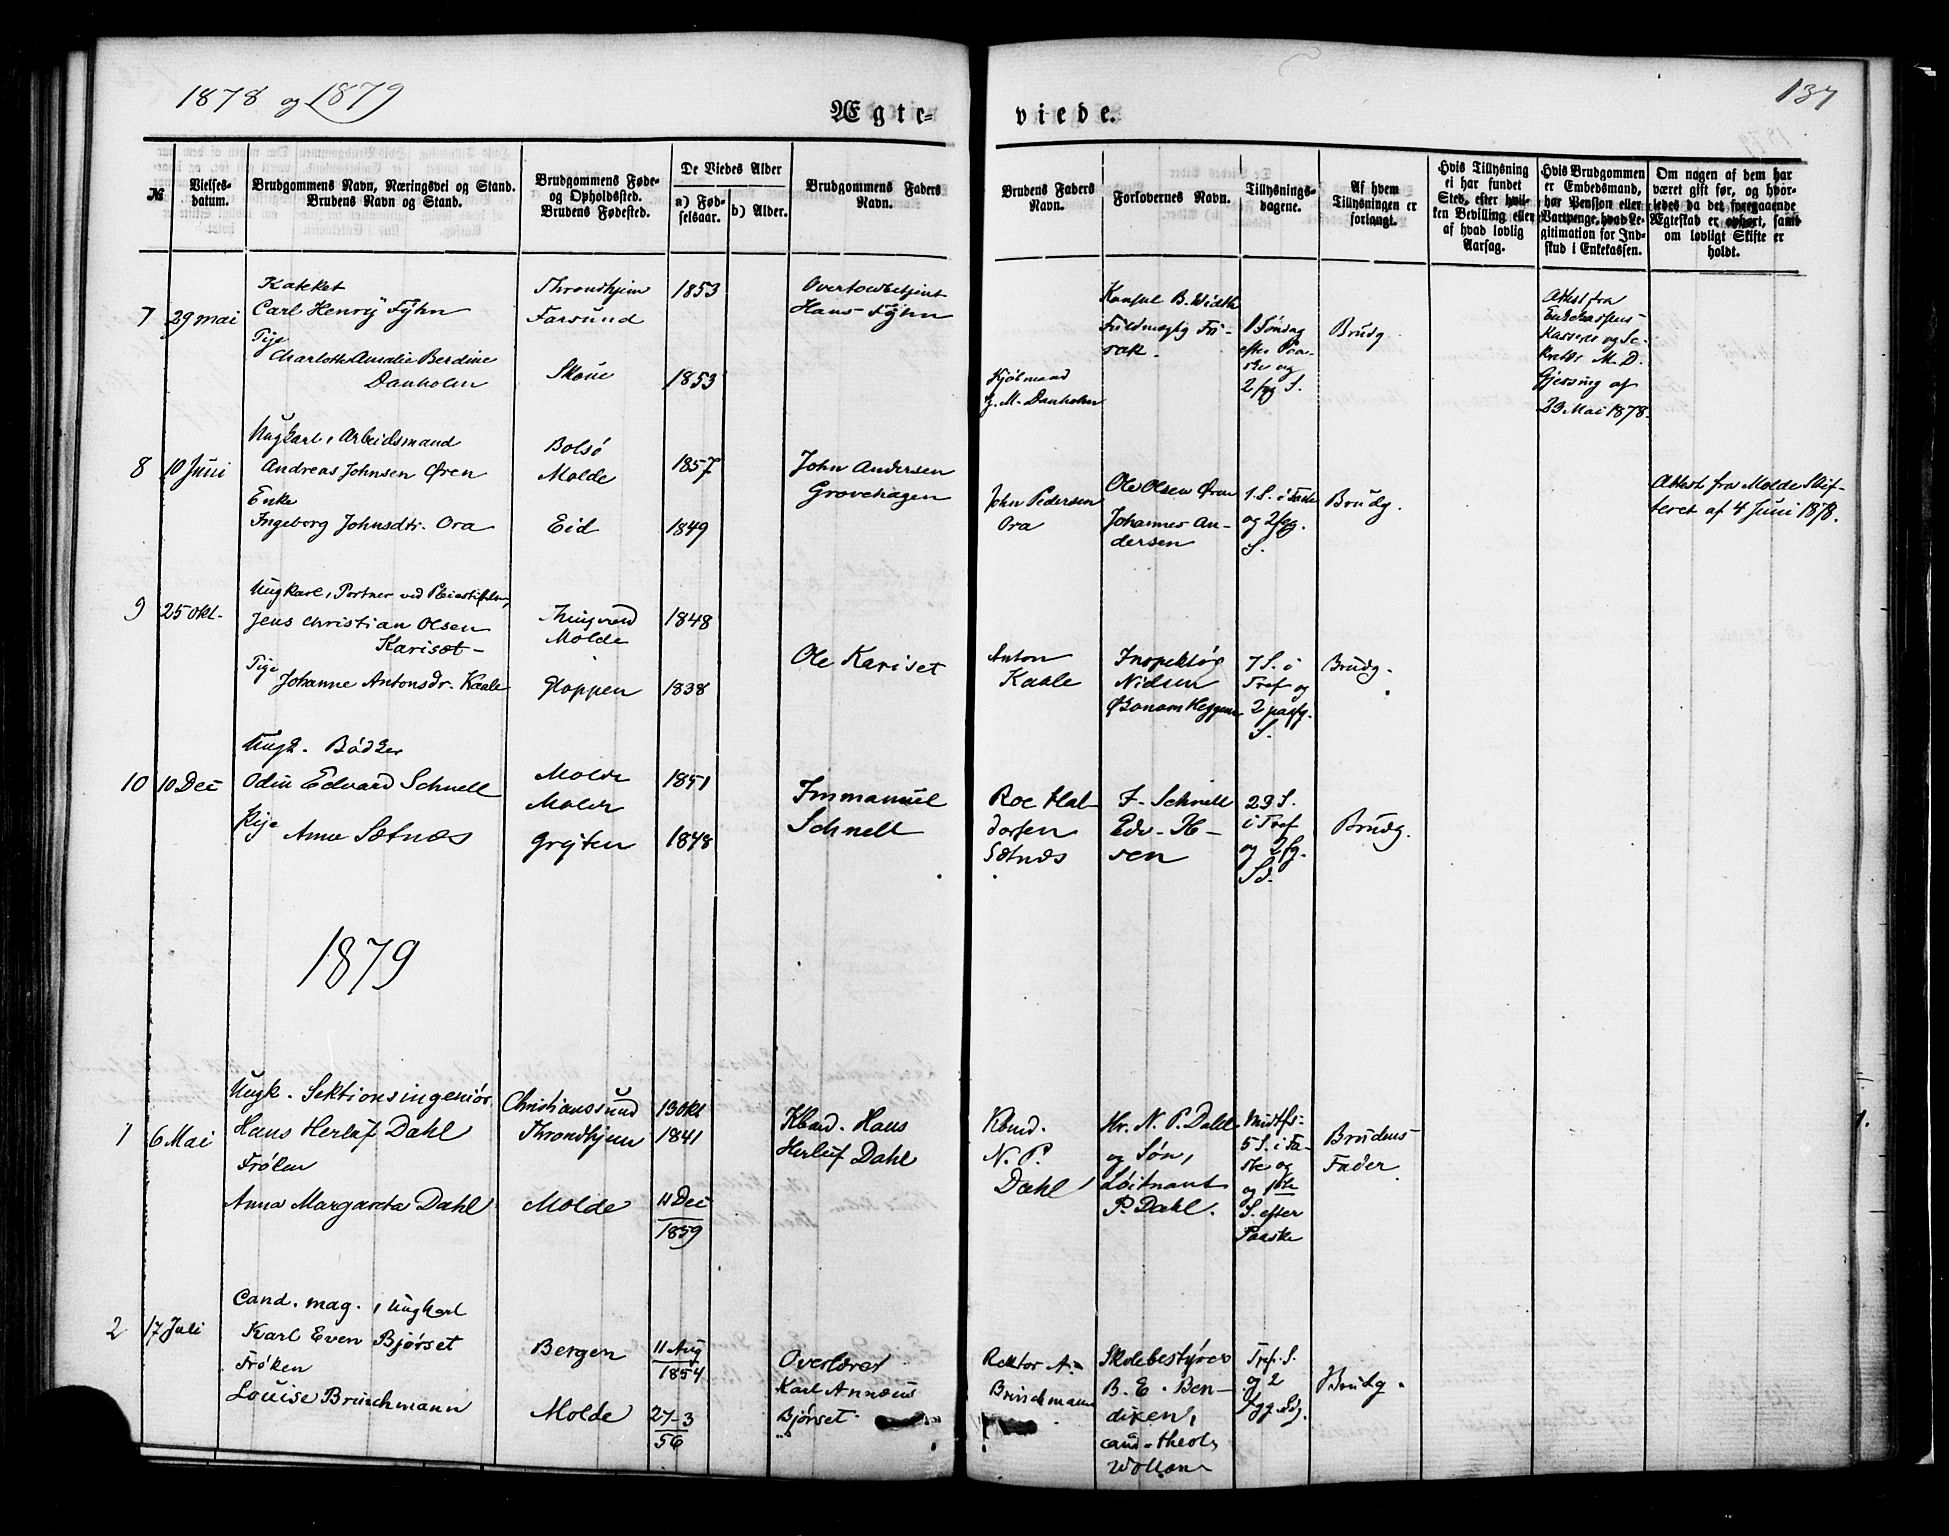 1878 og 1879
137
Ægte-
viede.
№
Vielses-
datum.
Brudgommens Navn, Næringsvei og Stand.
Brudens Navn og Stand.
Brudgommens Føde-
og Opholdssted.
Brudens Fødested.
De Viedes Alder
a) Fød-
selsaar.
b) Alder.
Brudgommens Faders
Navn.
Brudens Faders
Navn.
Forlovernes Navn.
Tillysnings-
dagene.
Af hvem
Tillysningen er
forlangt.
Hvis Tillysning
ei har fundet
Sted, efter hvil-
ken Bevilling eller
af hvad lovlig
Aarsag.
Hvis Brudgommen
er Embedsmand,
har Pension eller
Vartpenge, hvad Le-
gitimation for Ind-
skud i Enkekassen.
Om nogen af dem har
været gift før, og hvor-
ledes da det foregaaende
Ægteskab er ophørt, samt
om lovligt Skifte er
holdt.
7
29 mai
Carl Henrij Fÿhn
Pige
Charlotte Amalie Berdine
Danholm
Throndhjem
Farsund
Skoue
1853
1853
Overtoldbetjent
Hans Fÿhn
J. M. Danholm
Konsul B. Width
Fuldmægtig
1 Søndag
efter Paa-
ske og
2 fg S.
Brudg.
Attest fra
Enkekassens
Kasserer og Se-
M. D.
Gjessing af
23 Mai 1878.
8
10 Juni
Ungkarl, Arbeidsmand
Andreas Johnsen Øren
Enke
Ingeborg Johnsdtr. Ora
Bolsø
Molde
Eid
1857
1849
John Andersen
Grovehagen
John Pedersen
Ora
Ole Olsen Øren
Johannes An-
dersen
1. S. i Faste
og 2 fgg.
S.
Brudg.
Attest fra Molde Skif-
teret af 4 Juni 1878.
9
25 okt.
Ungkarl, Portner ved Pleiestiftelsen,
Jens Christian Olsen
Kariset -
Pige
Johanne Antonsdr. Kaale
Thingvold
Molde
Gloppen
1848
1838
Ole Kariset
Anton
Kaale
Inspektør
Nielsen
Økonom Heggem
7 S. i
Tref og
2 paafg.
S.
Brudg.
10
10 Dec
Ungk. Bødker
Odin Edvard Schnell
Pige
Anne Sætnæs
Molde
Molde
Grÿten
1851
1848
Immanuel
Schnell
Roe Hal-
dorsen
Sætnæs
F. Schnell
23 S.
i Tref
og 2 fg.
Sd.
Brudg.
1879
1
6 Mai
Ungk. Sektionsingeniør
Hans Herluf Dahl
Frøken
Anna Margareta Dahl
Christianssund
Throndhjem
Molde
13 Okt
1841
11 Dec
1859
Kbmd. Hans
Herluf Dahl
Kbmd.
N. P.
Dahl
Hr. N. P. Dahl
og Søn,
Løitnant
P. Dahl.
Midtfs-
5 S. i Fa-
ste og
og 1ste
S. efter
Paaske
Brudens
Fader
2
17 Juli
Cand. mag., Ungkarl
Karl Even Bjørset
Frøken
Louise Brinchmann
Bergen
Molde
11 Aug
1854
27-3
56
Overlærer
Karl Annæus
Bjørset.
Rektor A.
Brinchmann
Skolebestyrer
B. E. Ben-
dixen,
cand. theol.
Tref. S.
og 2
fgg. Sdg.
Brudg.
1.